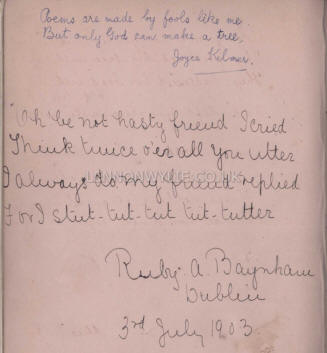 Poems are made by fools like me.
But only God can make a tree.
Joyce Kilmer.
Oh be not hasty friend I cried
Think twice o'er all you utter
I always do my friend replied
For I stut-tut-tut tut-tutter
Ruby. A. Baynham
Dublin
3rd July 1903